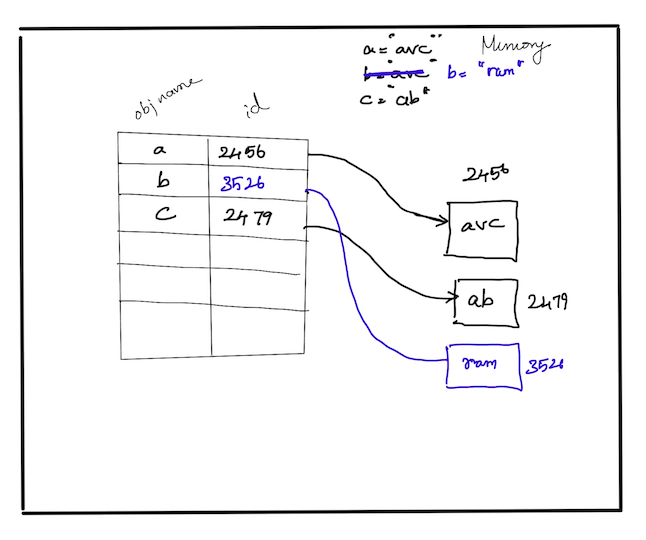 a = "avc"
Memory
b = "avc" b = "ram"
c = "ab"
obj name id
a 2456
b 3526
c 2479
2456
avc
ab 2479
ram 3526